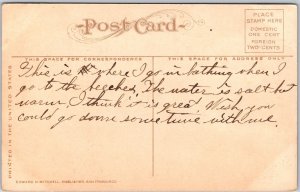 Post Card
PLACE
STAMP HERE
DOMESTIC
ONE CENT
FOREIGN
TWO CENTS
THIS SPACE FOR CORRESPONDENCE
THIS SPACE FOR ADDRESS ONLY
This is where I go in bathing when I
go to the beaches. The water is salt but
warm, I think it is great. Wish you
could go down some time with me.
PRINTED IN THE UNITED STATES
EDWARD H. MITCHELL, PUBLISHER, SAN FRANCISCO